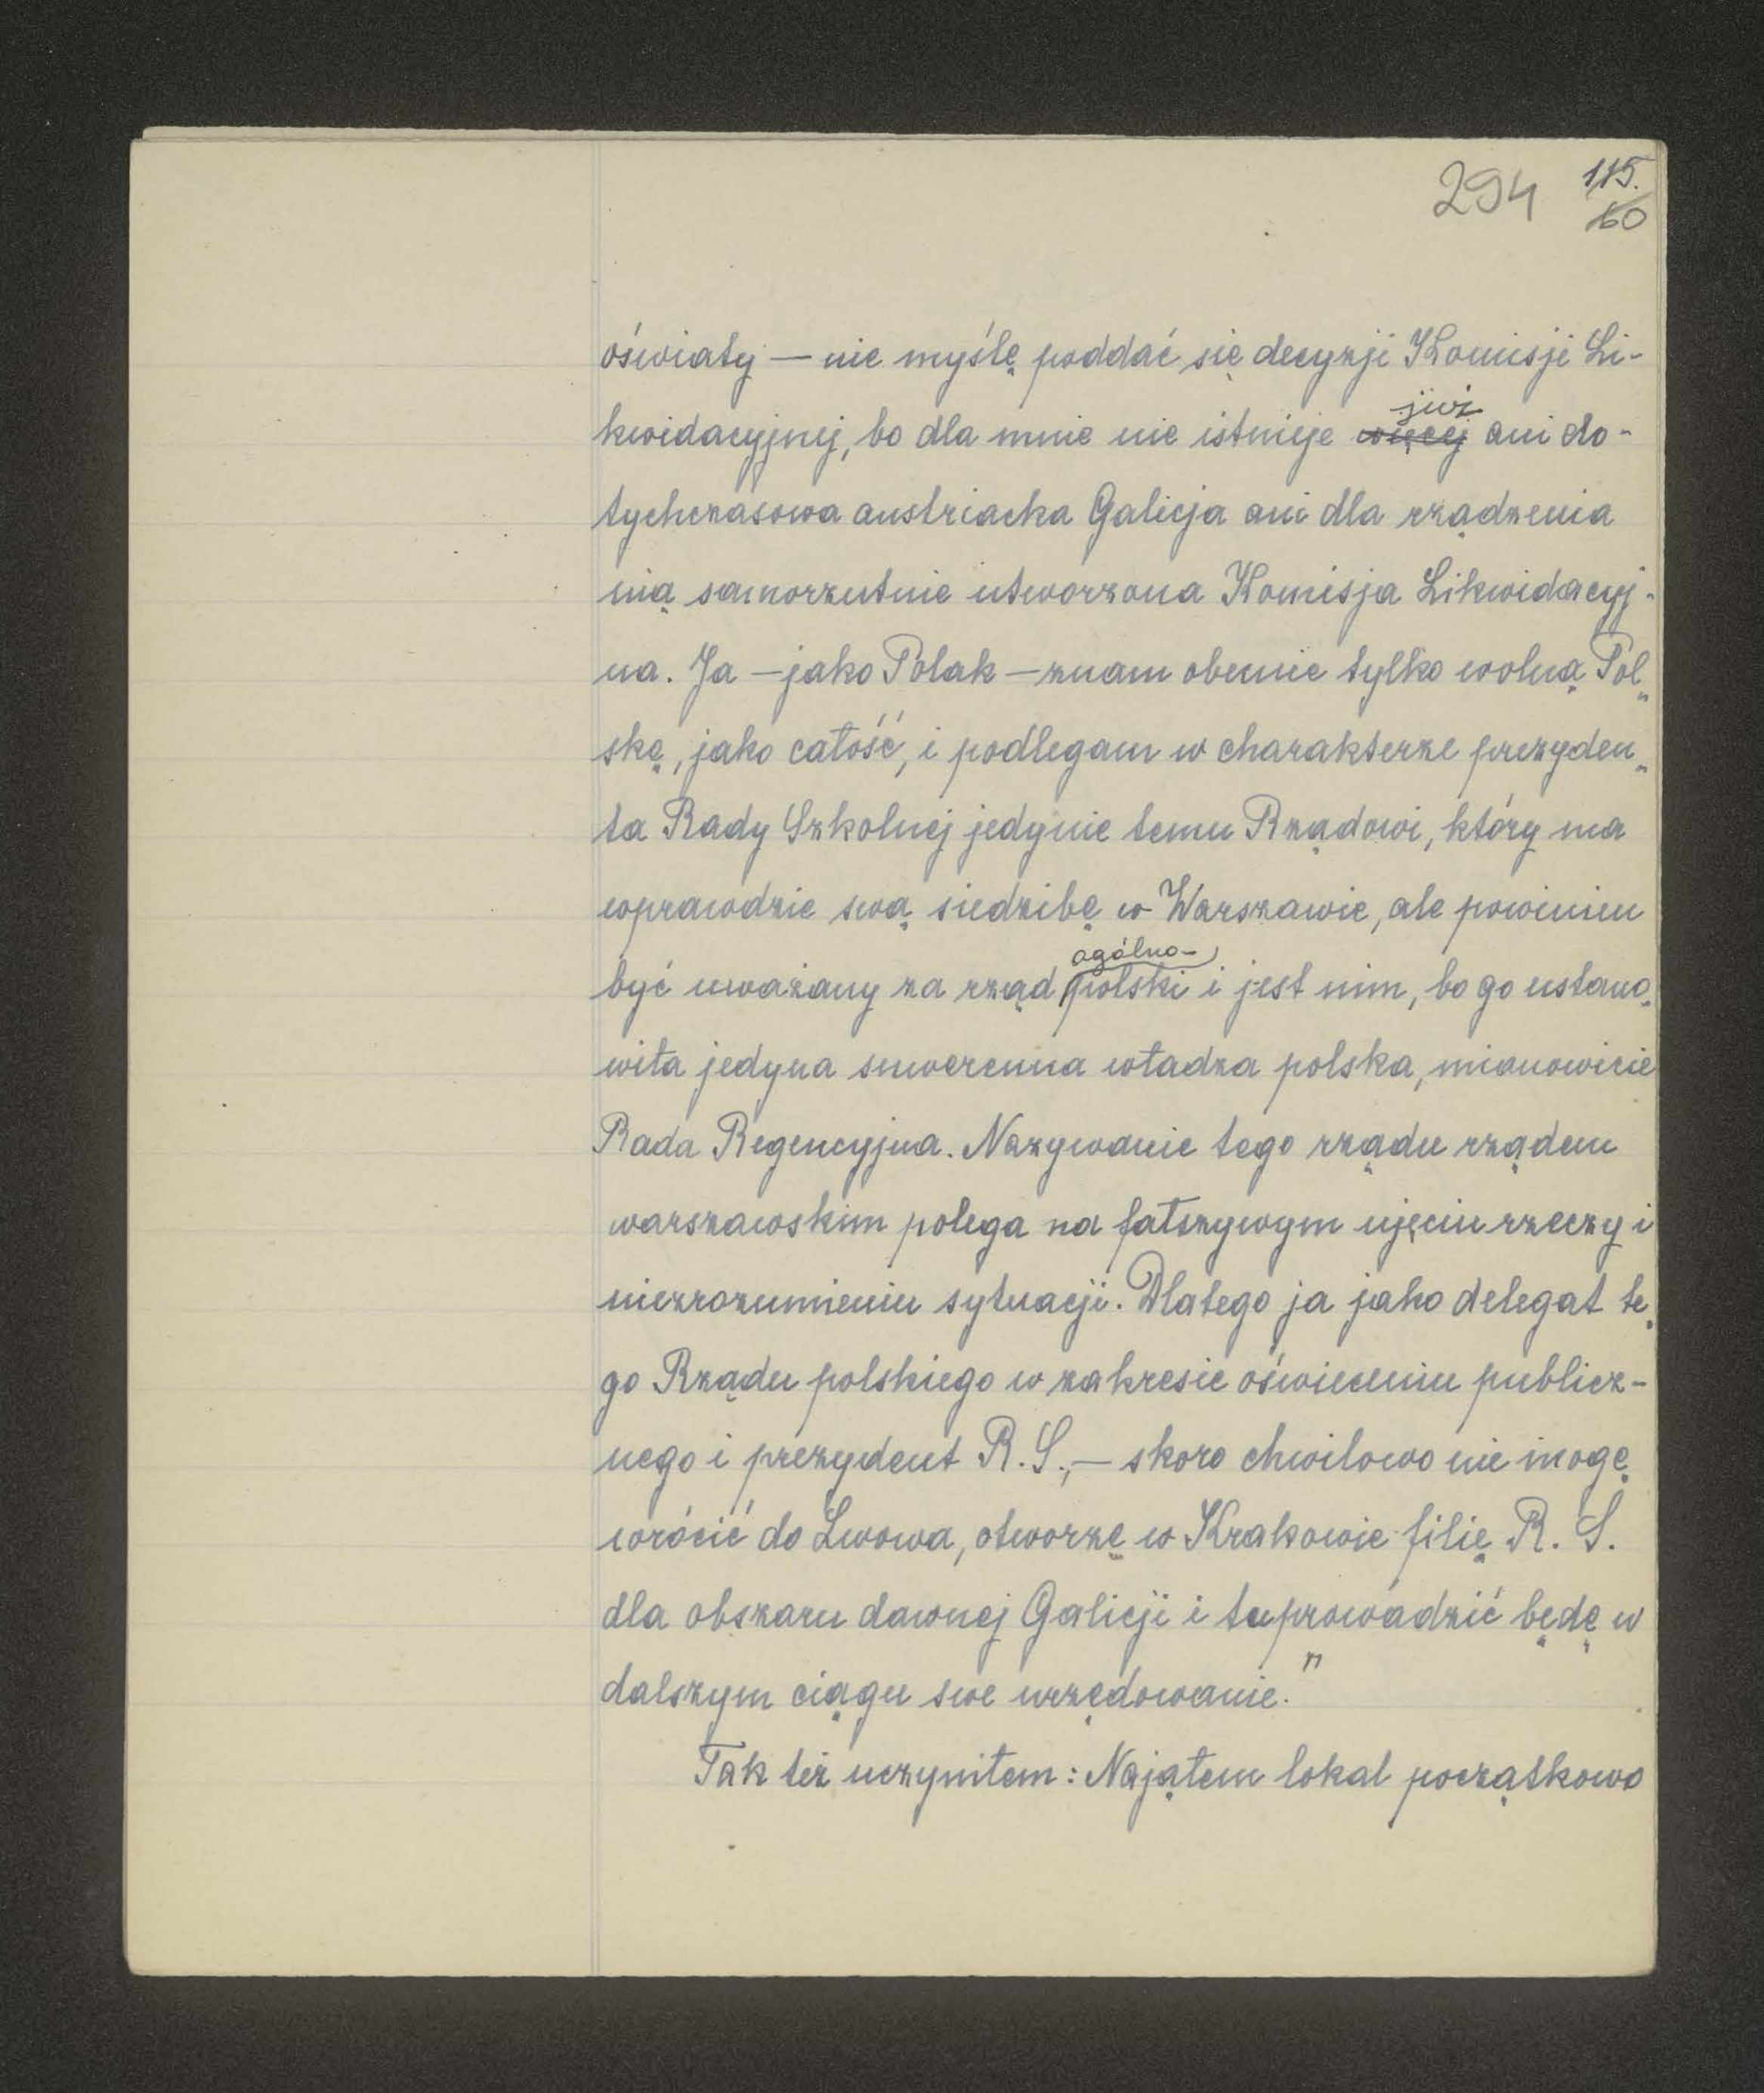 294 115.
60
oświaty — nie myślę poddać się decyzji Komisji Li-
kwidacyjnej, bo dla mnie nie istnieje więcej już ani do-
tychczasowa austriacka Galicja ani dla rządzenia
nią samorzutnie utworzona Komisja Likwidacyj-
na. Ja — jako Polak — znam obecnie tylko wolną Pol„
skę, jako całość, i podlegam w charakterze prezyden„
ta Rady Szkolnej jedynie temu Rządowi, który ma
wprawdzie swą siedzibę w Warszawie, ale powinien
być uważany za rząd ogólno-polski i jest nim, bo go ustano„
wiła jedyna suwerenna władza polska, mianowicie
Rada Regencyjna. Nazywanie tego rządu rządem
warszawskim polega na fałszywym ujęciu rzeczy i
niezrozumieniu sytuacji. Dlatego ja jako delegat te„
go Rządu polskiego w zakresie oświeceniu publicz-
nego i prezydent R.S., — skoro chwilowo nie mogę
wrócić do Lwowa, otworzę w Krakowie filię R. S.
dla obszaru dawnej Galicji i tu prowadzić będę w
dalszym ciągu swe urzędowanie."
Tak też uczyniłem: Nająłem lokal początkowo